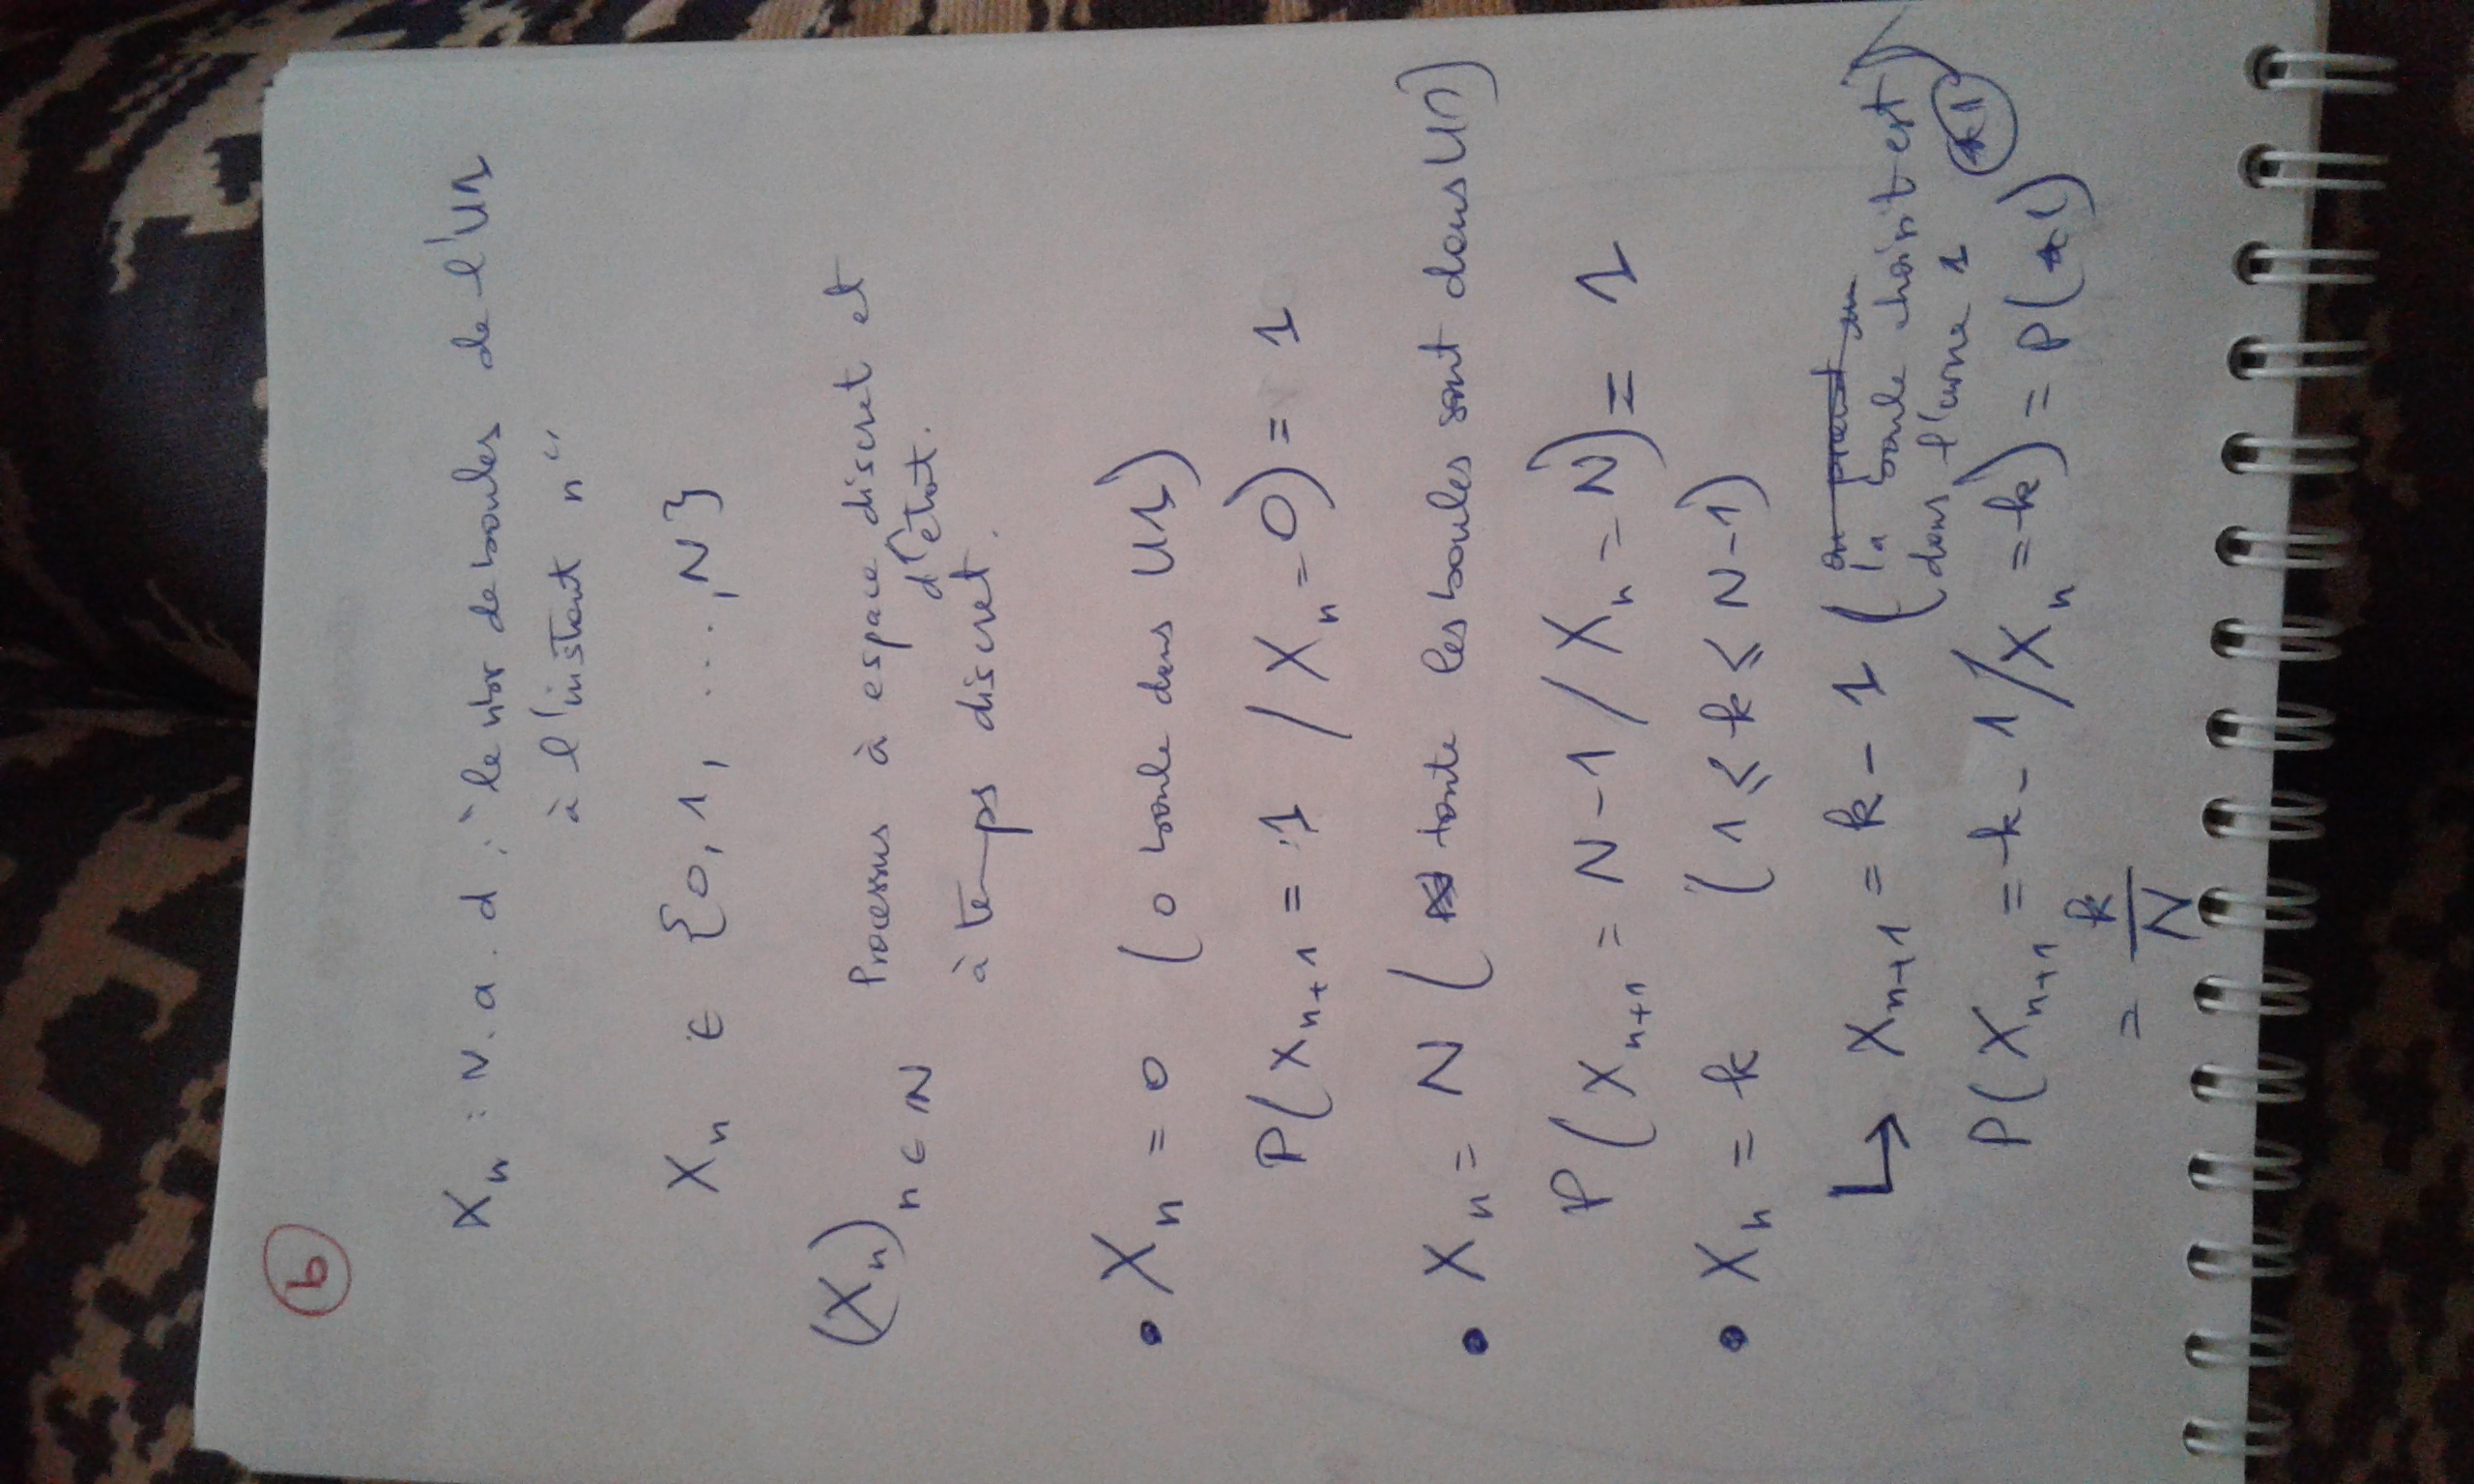 b
Xn : V. a. d : "le nbr de boules de l'U1
à l'instant n"
Xn ∈ {0, 1, ..., N}
(Xn) n ∈ ℕ Processus à espace discret et
d'état.
à temps discret.
• Xn = 0 (0 boule dans U1)
P(Xn+1 = 1 / Xn = 0) = 1
• Xn = N ( toute les boules sont dans U1)
P(Xn+1 = N-1 / Xn = N) = 1
• Xn = k (1 ⩽ k ⩽ N-1)
on prend un
↳ Xn+1 = k - 1 (la boule choisit est
dans l'urne 1) *1
P(Xn+1 = k-1 / Xn = k) = P(*1)
= k/N